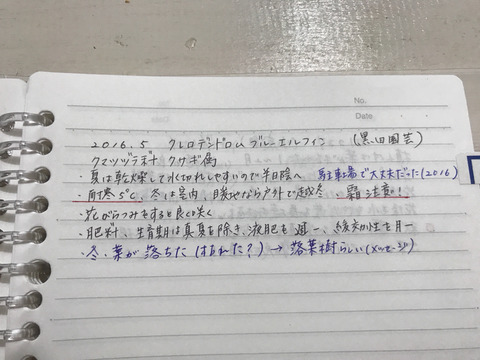 No.
Date
2016.5 クレロデンドロム ブルーエルフィン (黒田園芸)
クマツヅラ科 クサギ属
・夏は乾燥して水切れしやすいので半日陰へ 駐車場で大丈夫だった(2016)
耐寒5℃、冬は室内、暖地なら戸外で越冬 霜注意!
・花がらつみをすると良く咲く
・肥料、生育期は真夏を除き、液肥を週一、緩効性を月一
・冬、葉が落ちた(はれた?)→落葉樹らしい(メッセージ)